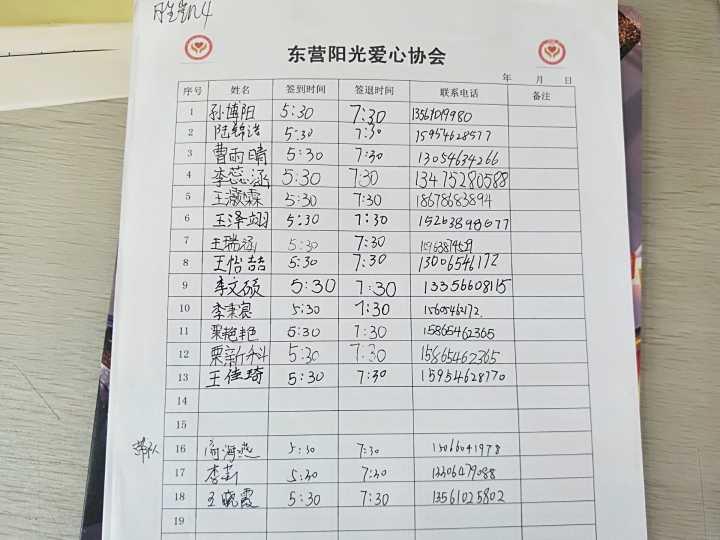 胜凯4
东营阳光爱心协会
年 月 日
序号 姓名 签到时间 签退时间 联系电话 备注
1 孙博阳 5:30 7:30
2 陆锦浩 5:30 7:30 15954628577
3 曹雨晴 5:30 7:30 13054634266
4 李蕊涵 5:30 7:30 13475280588
5 王灏霖 5:30 7:30 18678683894
6 王泽翊 5:30 7:30
7 王瑞涵 5:30 7:30
8 王怡喆 5:30 7:30 13006546172
9 李文硕 5:30 7:30 13356608115
10 李秉宸 5:30 7:30
11 栗艳艳 5:30 7:30 15865462365
12 栗新科 5:30 7:30 15865462365
13 王佳琦 5:30 7:30 15954628770
14
15
带队 16 海燕 5:30 7:30 15066041978
17 李莉 5:30 7:30 13306479088
18 王晓霞 5:30 7:30 13561025802
19